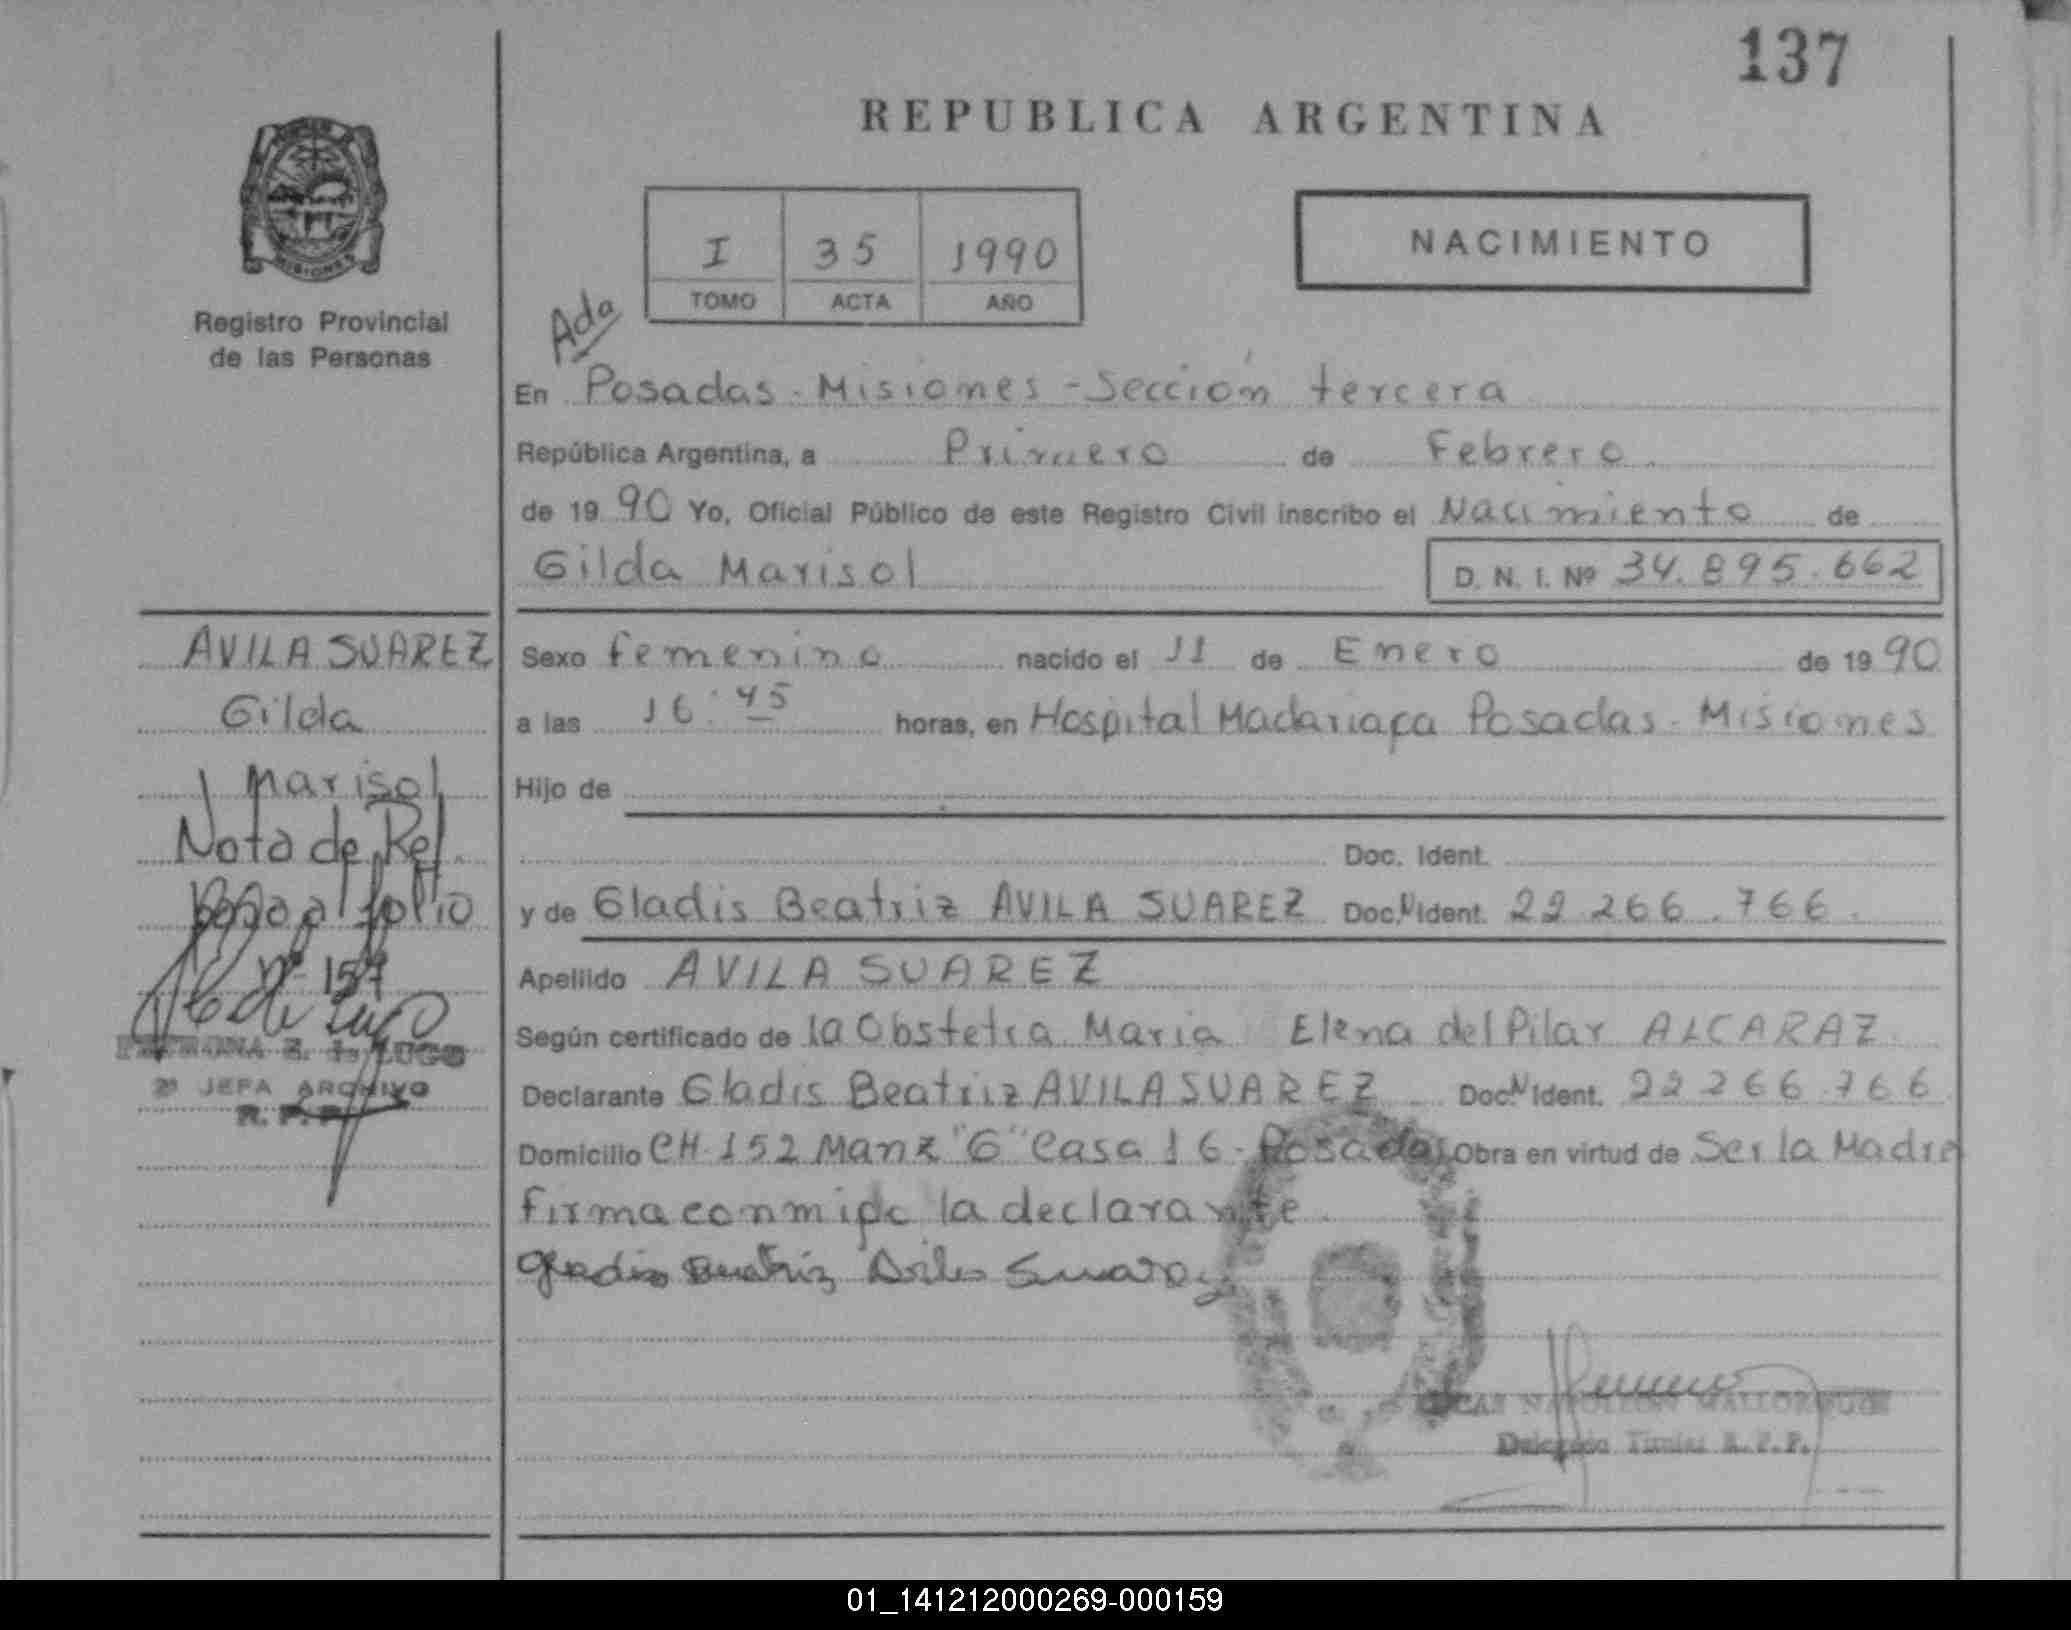 137
REPUBLICA ARGENTINA
MISIONES
Registro Provincial
de las Personas
I 35 1990
TOMO ACTA AÑO
NACIMIENTO
Ada
En Posadas - Misiones - Sección tercera
República Argentina, a Primero de Febrero
de 1990 Yo, Oficial Público de este Registro Civil inscribo el Nacimiento de
Gilda Marisol D. N. I. Nº 34.895.662
AVILA SUAREZ
Gilda
Marisol
Nota de Ref.
pasa al folio
nº 157
PETRONA E. de LUGO
2ª JEFA ARCHIVO
R. P. P.
Sexo femenino nacido el 11 de Enero de 1990
a las 16:45 horas, en Hospital Madariaga Posadas - Misiones
Hijo de
Doc. Ident.
y de Gladis Beatriz AVILA SUAREZ Doc. N Ident. 22.266.766.
Apellido AVILA SUAREZ
Según certificado de la Obstetra Maria Elena del Pilar ALCARAZ
Declarante Gladis Beatriz AVILA SUAREZ Doc. N Ident. 22266.766
Domicilio CH. 152 Manz "G" Casa 16 - Posadas Obra en virtud de Ser la Madre
firma conmigo la declarante.
Gladis Beatriz Avila Suarez
NAPOLEON
R. P. P.
01_141212000269-000159